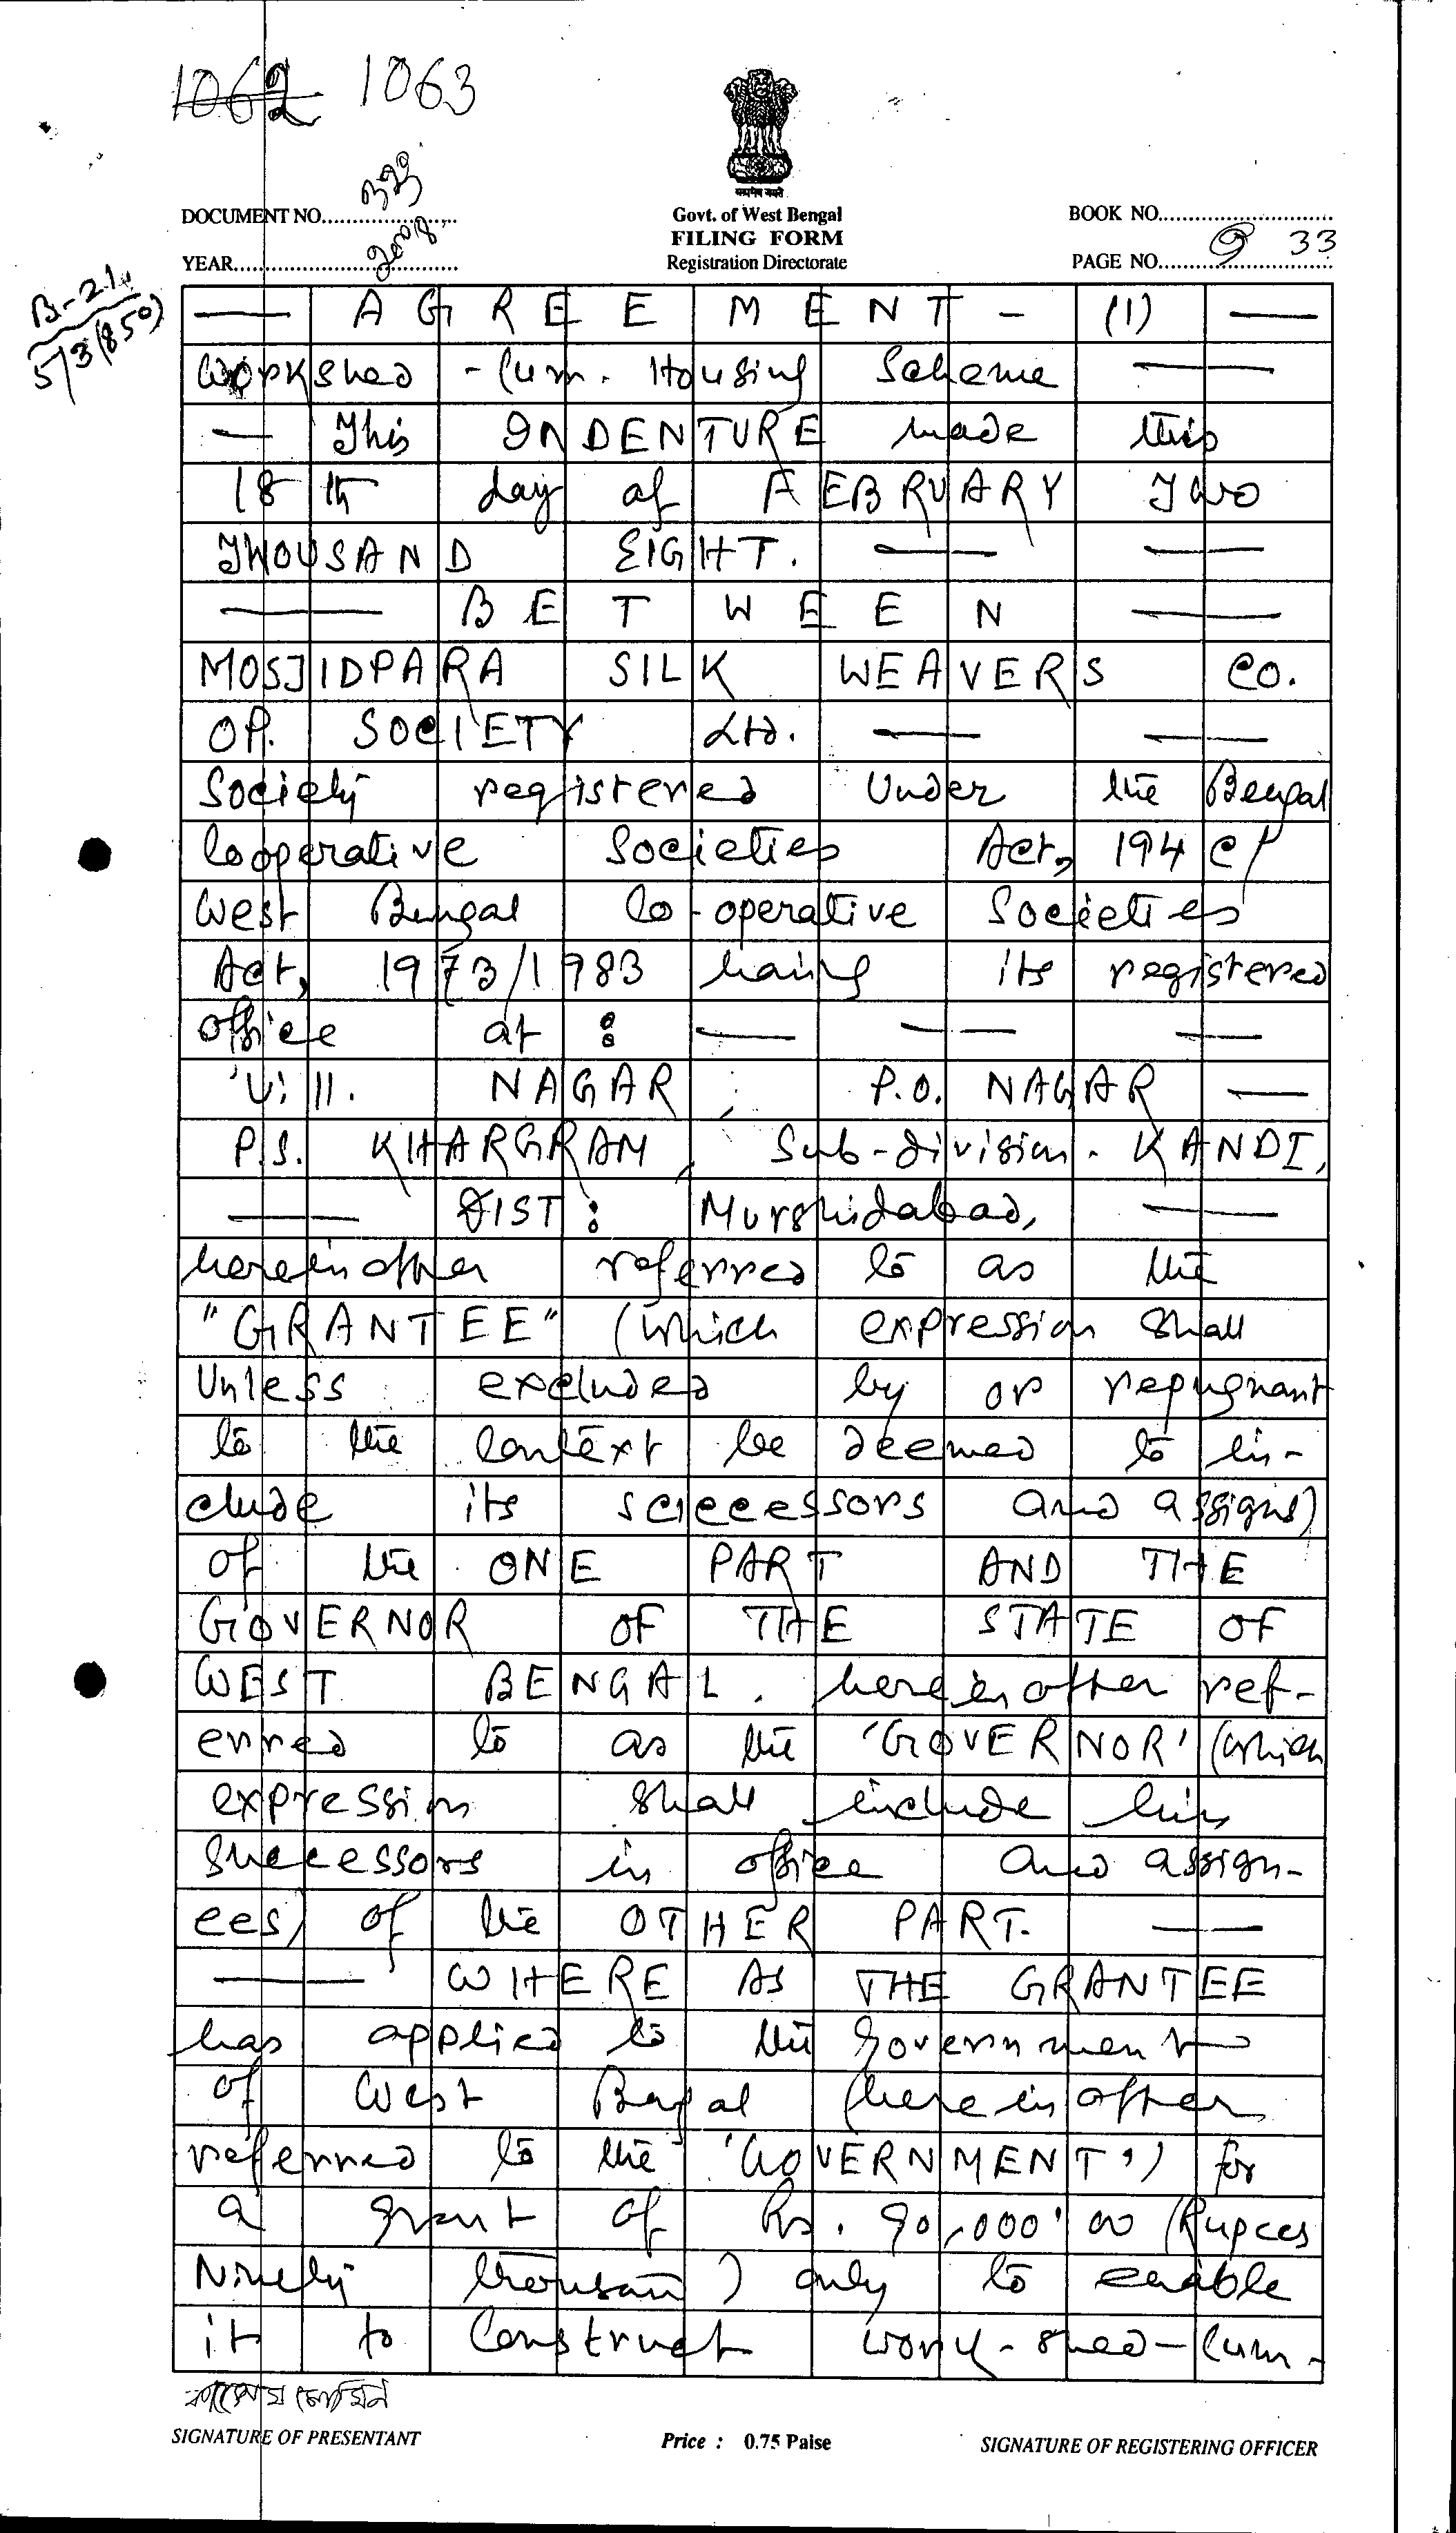 1062 1063
सत्यमेव जयते
DOCUMENT NO.
Govt. of West Bengal
BOOK NO.
FILING FORM
YEAR 2008
Registration Directorate
PAGE NO. 33
B-21
5/3(850)
— AGREEMENT - (1) —
Workshed - Cum. Housing Scheme —
— This INDENTURE made this
18th day of FEBRUARY Two
THOUSAND EIGHT. — —
— BETWEEN —
MOSJIDPARA SILK WEAVERS CO.
OP. SOCIETY Ltd. — —
Society registered Under the Bengal
Cooperative Societies Act, 194
West Bengal Co-operative Societies
Act, 1973/1983 having its registered
office at : — — —
Vill. NAGAR, P.O. NAGAR —
P.S. KHARGRAM, Sub-division. KANDI,
— DIST: Murshidabad, —
hereinafter referred to as the
"GRANTEE" (which expression shall
Unless excluded by or repugnant
to the context be deemed to in-
clude its successors and assigns)
of the ONE PART AND THE
GOVERNOR OF THE STATE OF
WEST BENGAL. hereinafter ref-
erred to as the 'GOVERNOR' (which
expression shall include his
successors in office and assign-
ees) of the OTHER PART. —
— WHERE AS THE GRANTEE
has applied to the Government
of West Bengal (hereinafter
referred to the 'GOVERNMENT') for
a grant of Rs. 90,000'00 (Rupees
Ninety thousand) only to enable
it to Construct work-shed-Cum-
SIGNATURE OF PRESENTANT
Price : 0.75 Paise
SIGNATURE OF REGISTERING OFFICER